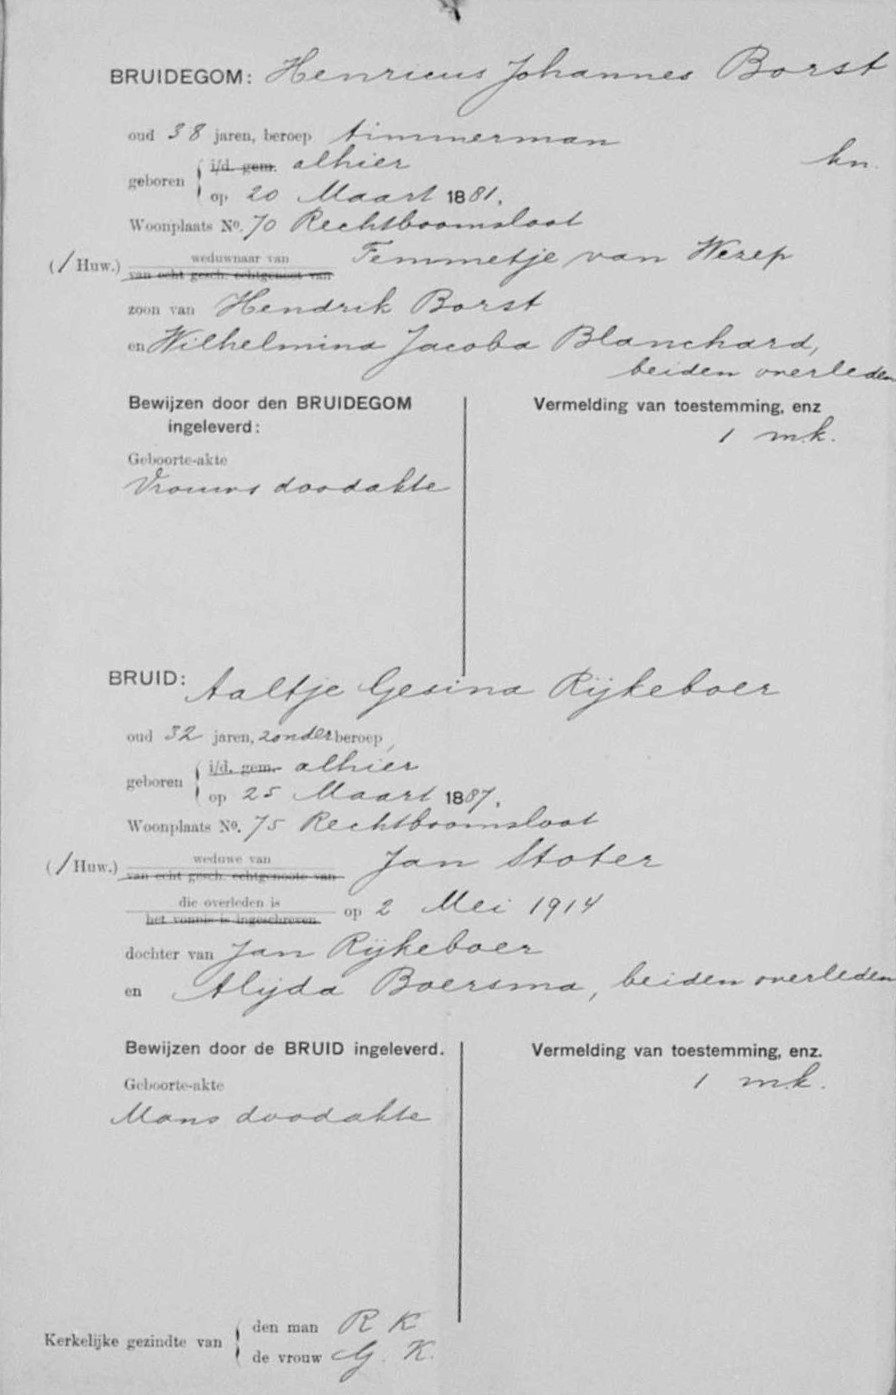 BRUIDEGOM: Henricus Johannes Borst
oud 38 jaren, beroep timmerman
hn.
geboren i/d. gem. alhier
op 20 Maart 1881.
Woonplaats No. 70 Rechtboomsloot
(1 Huw.) weduwnaar van Femmetje van Wezep
van echt gesch. echtgenoot van
zoon van Hendrik Borst
en Wilhelmina Jacoba Blanchard,
beiden overleden
Bewijzen door den BRUIDEGOM
ingeleverd:
Vermelding van toestemming, enz
1 m.k.
Geboorte-akte
Vrouws doodakte
BRUID: Aaltje Gesina Rijkeboer
oud 32 jaren, zonder beroep,
geboren i/d. gem. alhier
op 25 Maart 1887.
Woonplaats No. 75 Rechtboomsloot
(1 Huw.) weduwe van Jan Stoter
van echt gesch. echtgenoote van
die overleden is op 2 Mei 1914
het vonnis is ingeschreven.
dochter van Jan Rijkeboer
en Alijda Boersma, beiden overleden
Bewijzen door de BRUID ingeleverd.
Vermelding van toestemming, enz.
1 m.k.
Geboorte-akte
Mans doodakte
Kerkelijke gezindte van
den man R K
de vrouw G. K.